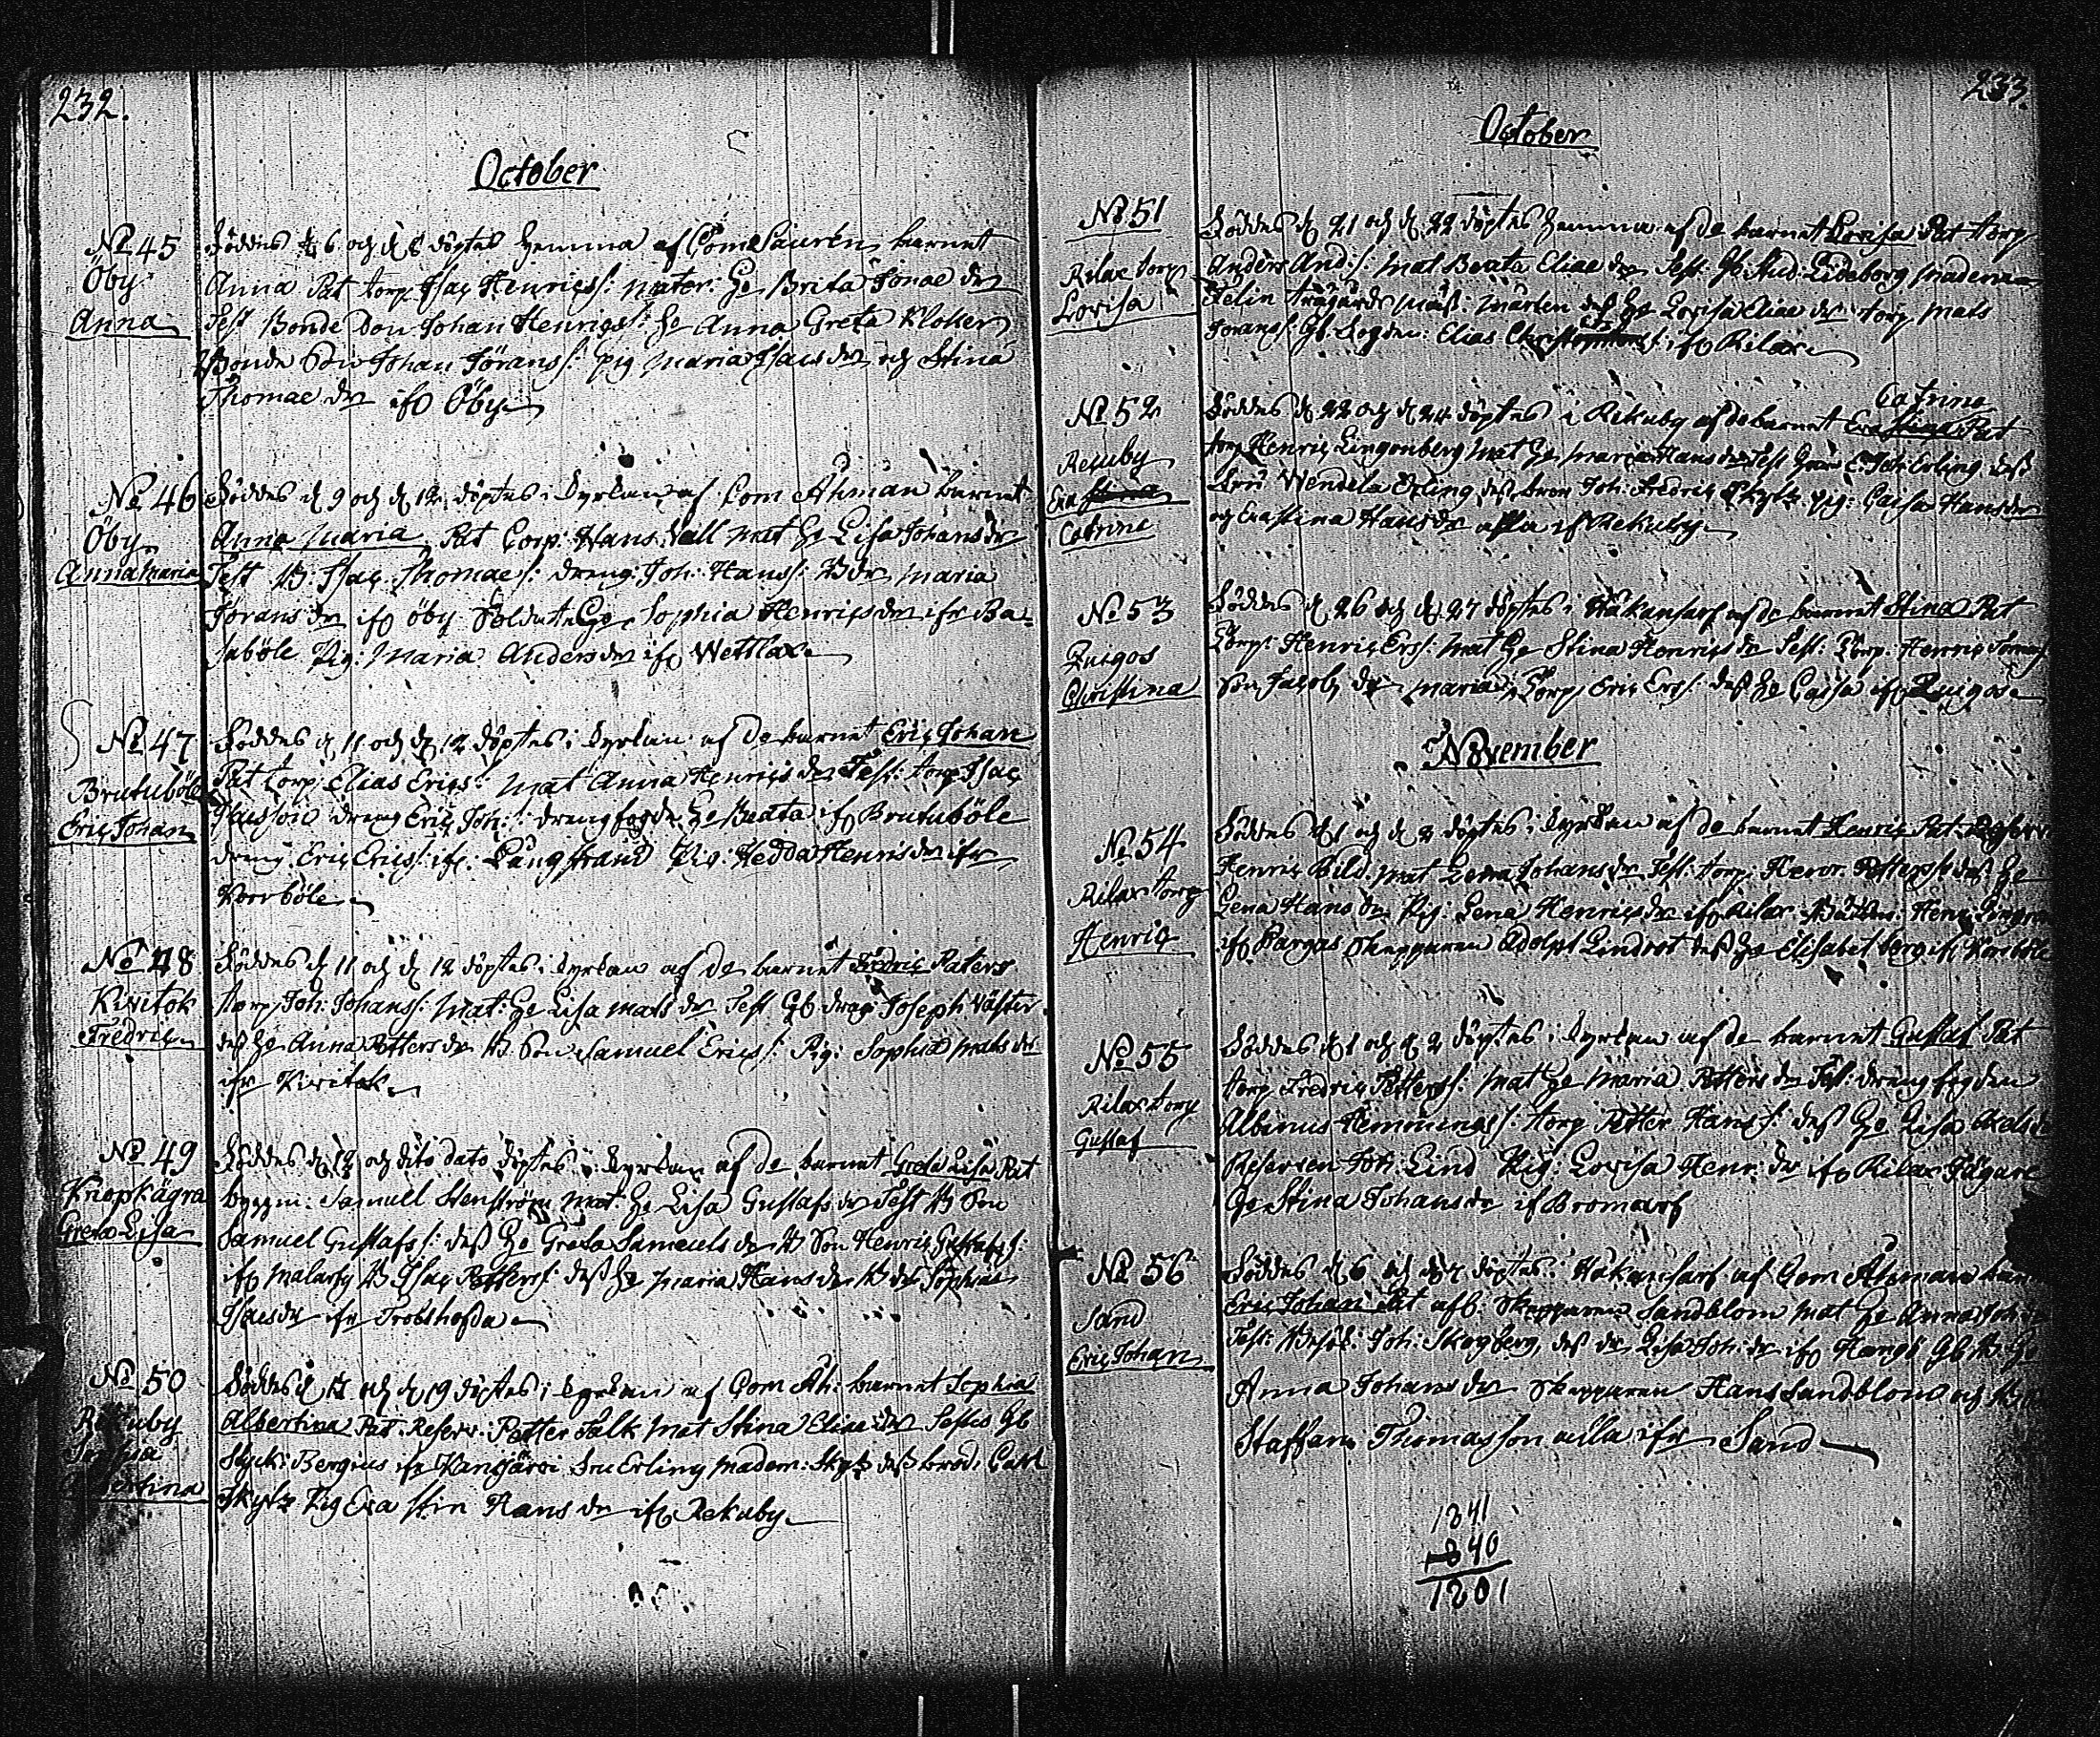 232.
October
No 45
Öby
Anna
Föddes d 6 och d 8 döptes hemma af Com Laurén barnet
Anna Pat torp Isac Henrics: mater: Hu Brita Jonae dr
Test Bonde Son Johan Henrics: Hu Anna Greta Kloker
Bonde Son Johan Jörans: Pig Maria Isacs dr och Stina
Thomae dr ifr Öby
No 46
Öby
Anna Maria
Föddes d 9 och d 12 döptes i Kyrkan af Com Åhman barnet
Anna Maria Pat Corp: Hans Vall Mat Hu Lisa Johans dr
Test B: Isac Thomae s: dreng: Joh: Hanss: B dr Maria
Jörans dr ifr öby Soldate Hu Sophia Henrics dr ifr Ba-
saböle Pig: Maria Anders dr ifr Wettlax
No 47
Brutuböle
Eric Johan
Föddes d 11 och d 12 döptes i Kyrkan af de barnet Eric Johan
Pat torp Elias Erics: mat Anna Henrics dr Test: torp Isac
Isacsson dreng Eric Joh: s: drengfogde Hu Beata ifr Brutuböle
dreng Eric Erics: ifr: Långstrand Pig: Hedda Henris dr ifr
Norrböle
No 48
Kivitok
Fredric
Föddes d 11 och d 12 döptes i Kyrkan af de barnet Fredric Paters
torp Joh: Johanss: Mat: Hu Lisa Mats dr Test Gb drag: Joseph Väster
dess Hu Anna Petters dr B Son Samuel Erics: Pig: Sophia Mats dr
ifr Kivitok
No 49
Knopkägra
Greta Lisa
Föddes d 12 och dito dato döptes i Kyrkan af de barnet Greta Lisa Pat
Samuel Stenström Mat: Hu Lisa Gustafs dr Test B Son
Samuel Gustafs s: dess Hu Greta Samuels dr B Son Henric Gustafs s:
ifr Malarby B Isac Petters: dess Hu Maria Hans dr B dr Sophia
Isacs dr ifr Trobshofda
No 50
Sophia
Föddes d och d 19 döptes i Kyrkan af Com Åh: barnet Sophia
Albertina Pat: Reserv: Petter Falk Mat Stina Eliae dr Testis Gb
Styck: Bergius ifr Kansjärvi Fru Erling Madem: Skytz dess brod: Carl
Skytz Pig Eva Stin Hans dr ifr Rekuby
233.
October
No 51
Rilax torp
Lovisa
Föddes d 21 och d 22 döptes hemma af de barnet Lovisa Pat torp
Anders And: s: Mat Beata Eliae dr Test Gb And: Lideborg Madem
Felin trägårds mäst: Mårten dess Hu Lovisa Eliae dr torp Mats
Joranss: Gb Fogden: Elias ifr Rilax
No 52
Rekuby
Eva Stina
Catrina
Catrina
Föddes d 22 och d 24 döptes i Rekuby af de barnet Eva Stina Pat
torp Henric Lingonberg Mat Hu Maria Hans dr Test Herr E. Joh: Erling, dess
Fru Vendela Erling dess bror Joh: Fredric Skytz Pig: Caisa Hans dr
och Eva Stina Hans dr alla ifr Rekuby
No 53
Zuigos
Christina
Föddes d 26 och d 27 döptes i Håkansarf af de barnet Stina Pat
Torp: Henric Ers: Mat Hu Stina Henrics dr Test: Torp: Henric
Son Jacob, dr Maria, Torp Eric Ers: dess Hu Caisa ifr Zuigos
November
No 54
Rilax torp
Henric
Föddes d 1 och d 2 döptes i Kyrkan af de barnet Henric Pat:
Henric Bild: mat Lena Johans dr Test: torp: Henr: Petterss dess Hu
Lena Hans dr Pig: Lena Henrics dr ifr Rilax
ifr Pargas Skepparen Adolph Lindrot dess Hu Elisabet Berg ifr Norrböle
No 55
Rilax torp
Gustaf
Föddes d 1 och d 2 döptes i Kyrkan af de barnet Gustaf Pat
torp Fredric Petters: Mat Hu Maria Petters dr Test: drengfogden
Albinus Hemmings: torp Petter Hans s: dess Hu Lisa Axels dr
Reserven Joh: Lind Pig: Lovisa Henr: dr ifr Rilax Jägare
Hu Stina Johans dr if Bromarf
No 56
Sand
Eric Johan
Föddes d 6 och d 7 döptes i Håkansarf af Com Åhman
Eric Johan Pat afl: Skepparen Sandblom Mat Hu Anna Joh
Test: Joh: Skogberg, dess dr Lisa Joh: dr ifr Hangö Gb
Anna Johans dr Skepparen Hans Sandblom och
Staffan Thomasson alla ifr Sand
1841
840
1801